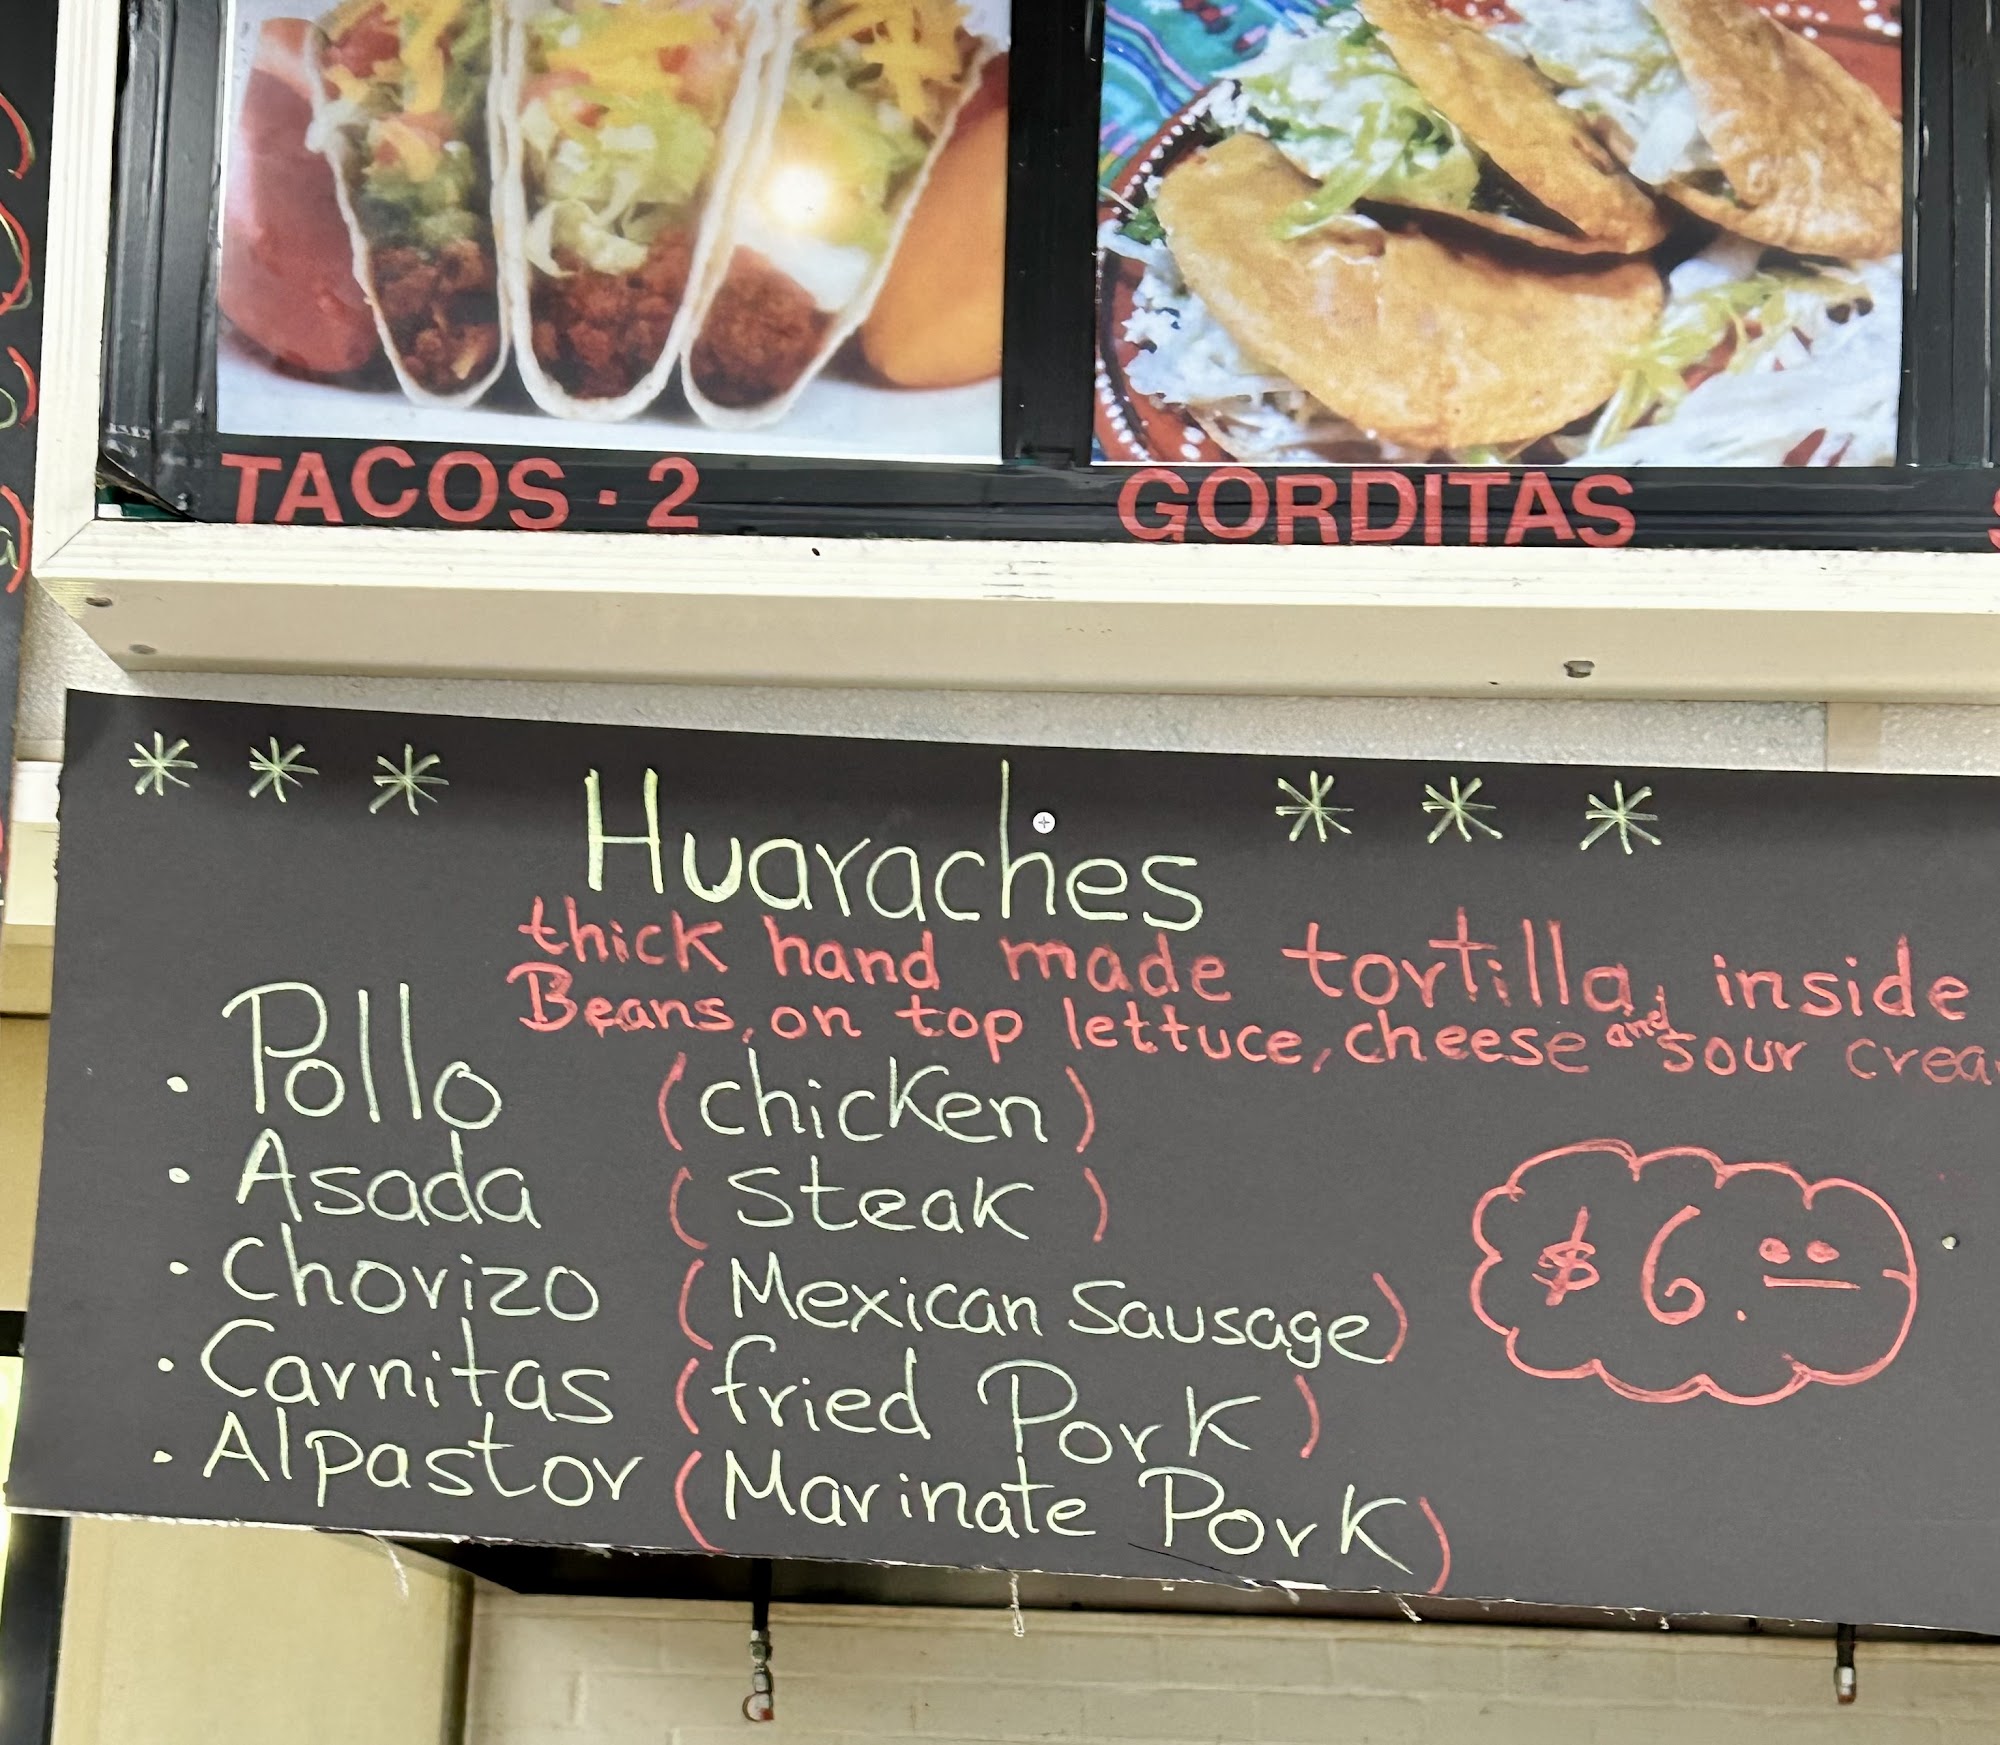 TACOS · 2
GORDITAS
* * * Huaraches * * *
thick hand made tortilla, inside
Beans, on top lettuce, cheese and sour
• Pollo (chicken)
• Asada (Steak)
• Chorizo (Mexican Sausage)
• Carnitas (fried Pork)
• Alpastor (Marinate Pork)
$6.00